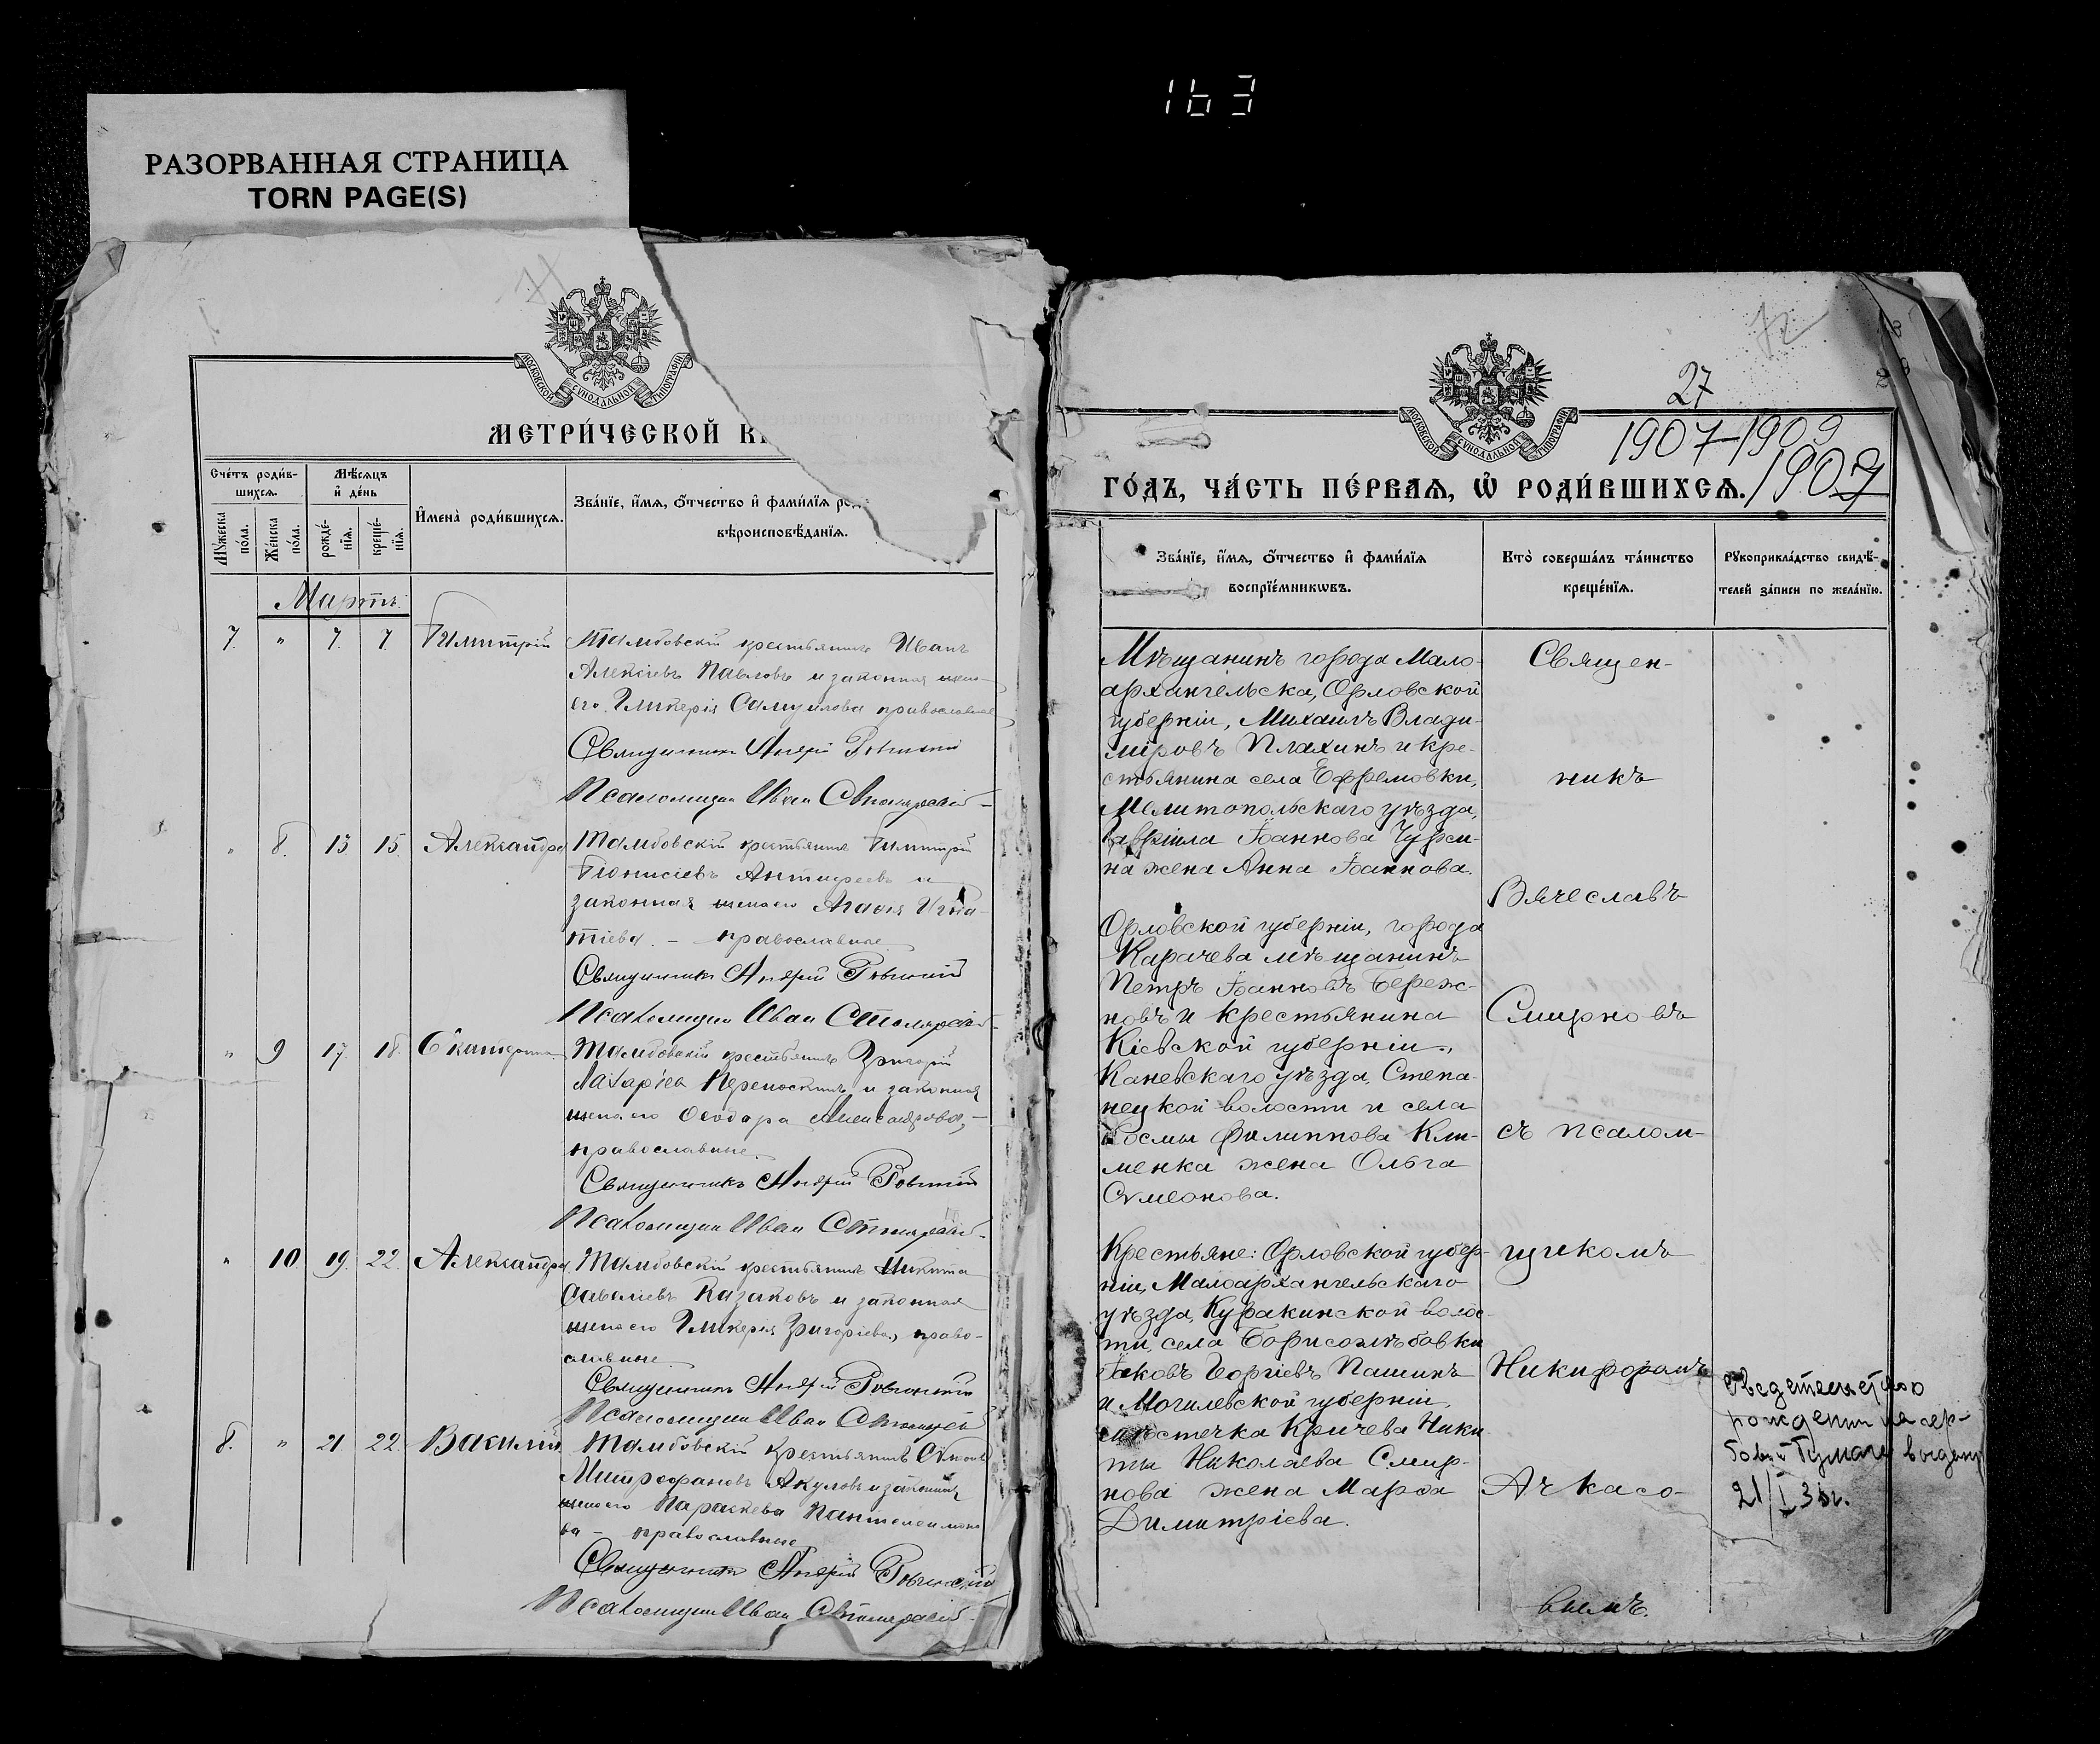 163
РАЗОРВАННАЯ СТРАНИЦА
TORN PAGE(S)
МОСКОВСКОЙ СѴНОДАЛЬНОЙ ТИПОГРАФІИ
МЕТРИ́ЧЕСКОЙ К
Сче́тъ роди́в-
шихсѧ.
Мѣ́сѧцъ
и҆ де́нь
Мꙋ́жеска по́ла.
Же́нска по́ла.
рожде́-нїѧ.
креще́-нїѧ.
И҆мена̀ роди́вшихсѧ.
Зва́нїе, и҆́мѧ, ѻ҆́тчество и҆ фами́лїѧ род
вѣроисповѣ́данїѧ.
Мартъ.
7. " 7. 7. Димитрій
Тамбовскій крестьянинъ Иванъ
Алексіевъ Павловъ и законная жена
его Гликерія Самуилова православные
Священникъ Андрей
Псаломщик Иван
" 8. 13 15. Александра
Тамбовскій крестьянинъ Димитрій
Діонисіевъ и
законная жена его Агафія Игна-
тіева. - православные
Священникъ Андрей
Псаломщик Иван
" 9 17. 18. Екатерина
Тамбовскій крестьянинъ Григорій
Лазаріев и законная
жена его Ѳеодора Александрова, -
православные.
Священникъ Андрей
Псаломщик Иван
" 10 19. 22. Александра
Тамбовскій крестьянинъ Никита
Савеліевъ Казаковъ и законная
жена его Гликерія Григоріева, право-
славные
Священникъ Андрей
Псаломщик Иван
8. " 21. 22. Василій
Тамбовскій крестьянинъ
Митрофановъ Акуловъ и законная
жена его Параскева Пантелеимоно
ва - православные
Священникъ Андрей
Псаломщик Иван
27
МОСКОВСКОЙ СѴНОДАЛЬНОЙ ТИПОГРАФІИ
1907-1909
ГО́ДЪ, ЧА́СТЬ ПЕ́РВАѦ, Ѡ҆ РОДИ́ВШИХСѦ. 1907
Зва́нїе, и҆́мѧ, ѻ҆́тчество и҆ фами́лїѧ
воспрїе́мникѡвъ.
Кто̀ соверша́лъ та́инство
креще́нїѧ.
Рꙋкоприкла́дство свидѣ́-
телей за́писи по жела́нїю.
Мѣщанинъ города Мало-
архангельска, Орловской
губерніи, Михаилъ Влади-
міровъ Плахинъ и кре-
стьянина села Ефремовки,
Мелитопольскаго уѣзда,
Гавріила Іоаннова
на жена Анна Іоаннова.
Орловской губерніи, города
Карачева мѣщанинъ
Петръ Іоанновъ Береж-
новъ и крестьянина
Кіевской губерніи,
Каневскаго уѣзда, Степа-
нецкой волости и села
Космы Филиппова Кли-
менка жена Ольга
Сѵмеонова.
Крестьяне: Орловской губер-
ніи, Малоархангельскаго
уѣзда, Куракинской волос-
ти, села Борисоглѣбовки
Іаковъ Георгіевъ Пашинъ
и Могилевской губерніи,
мѣстечка Кричева Ники-
ты Николаева Смир-
нова жена Марѳа
Димитріева.
Священ-
никъ
Вячеславъ
Смирновъ
съ псалом-
щикомъ
Никифоромъ
Ачкасо-
вымъ.
рождении на гер-
бовой бумаге выдано
21/I 36г.